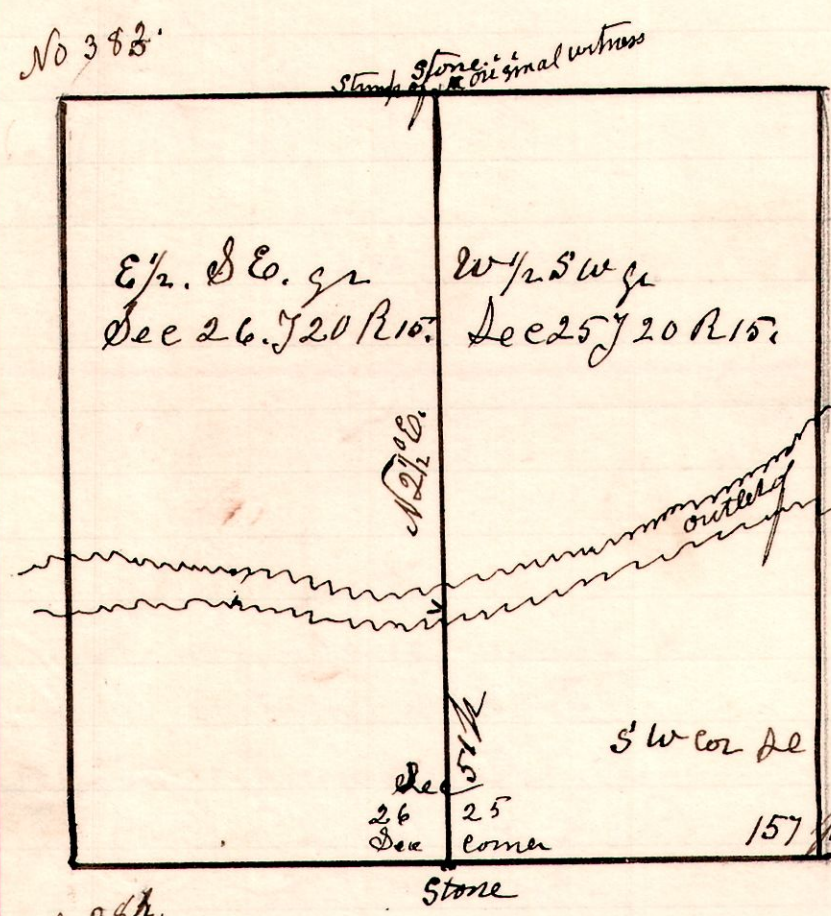 No 383.
Stone
Stump of original witness
E 1/2. S E. qr
Sec 26. T 20 R 15.
W 1/2 S W qr
Sec 25 T 20 R 15.
N 2 1/2° E.
outlet
S W cor Se
Sec
26 25
Sec corner
157
Stone